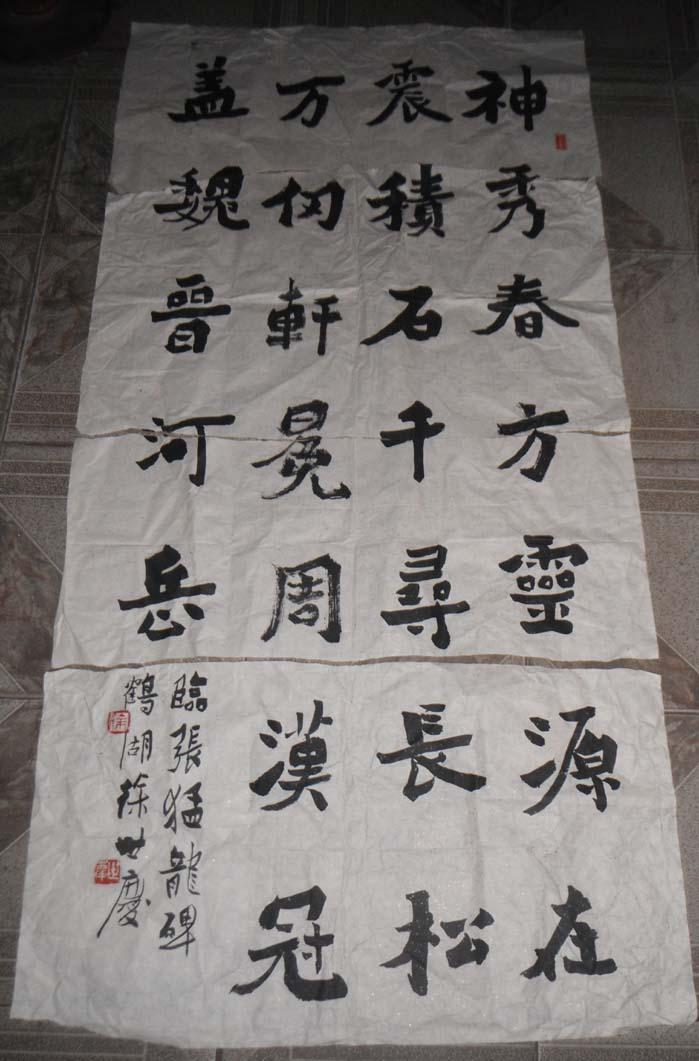 神秀春方靈源在
震積石千尋長松
万仞軒冕周漢冠
盖魏晉河岳
臨張猛龍碑
鶴湖徐世慶